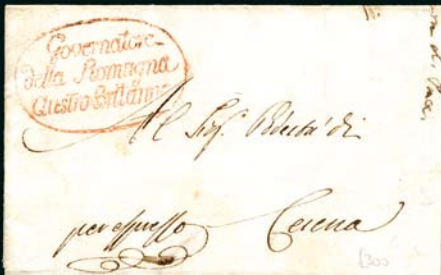 Governatore
della Romagna
Austro Britanna
Al Sig.r Podestà di
per espresso Cesena
1300